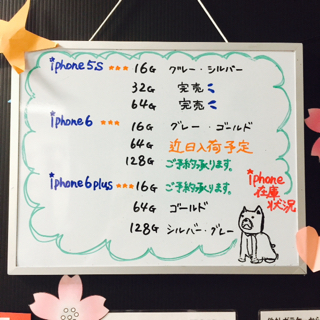 iphone5s ★★★ 16G グレー・シルバー
32G 完売
64G 完売
iphone6 ★★★ 16G グレー・ゴールド
64G 近日入荷予定
128G ご予約承ります。
iphone6plus ★★★ 16G ご予約承ります。
64G ゴールド
128G シルバー・グレー
iphone
在庫
状況